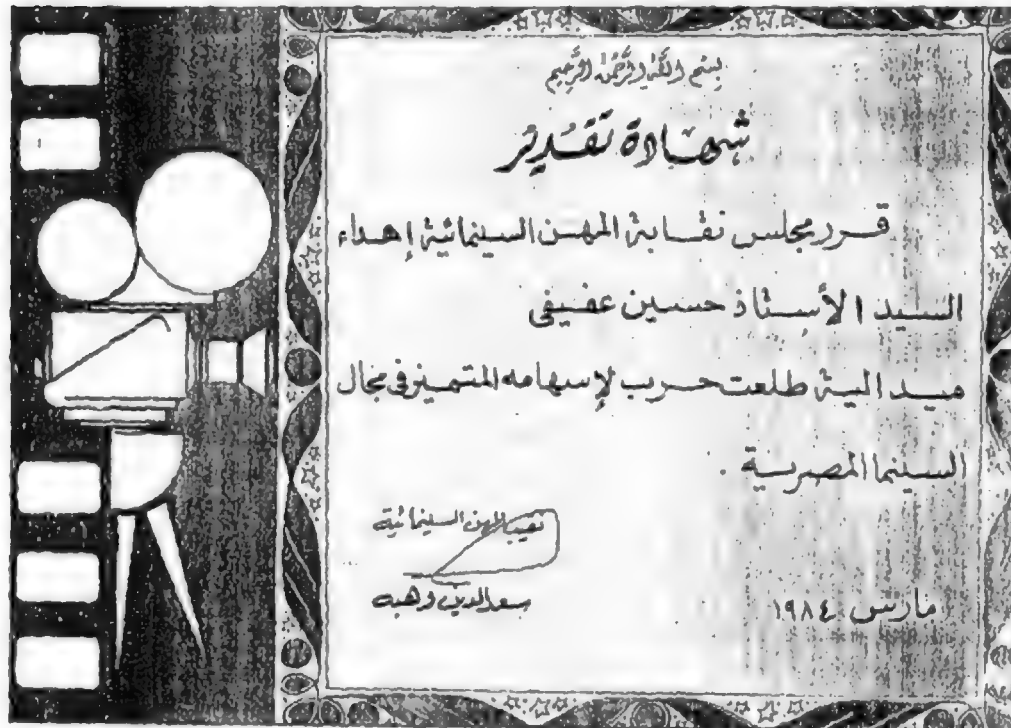 بسم الله الرحمن الرحيم
شهادة تقدير
قرر مجلس نقابة المهن السينمائية إهداء
السيد الأستاذ حسين عفيفى
ميدالية طلعت حرب لإسهامه المتميز فى مجال
السينما المصرية .
نقيب المهن السينمائية
سعد الدين وهبه
مارس ١٩٨٤